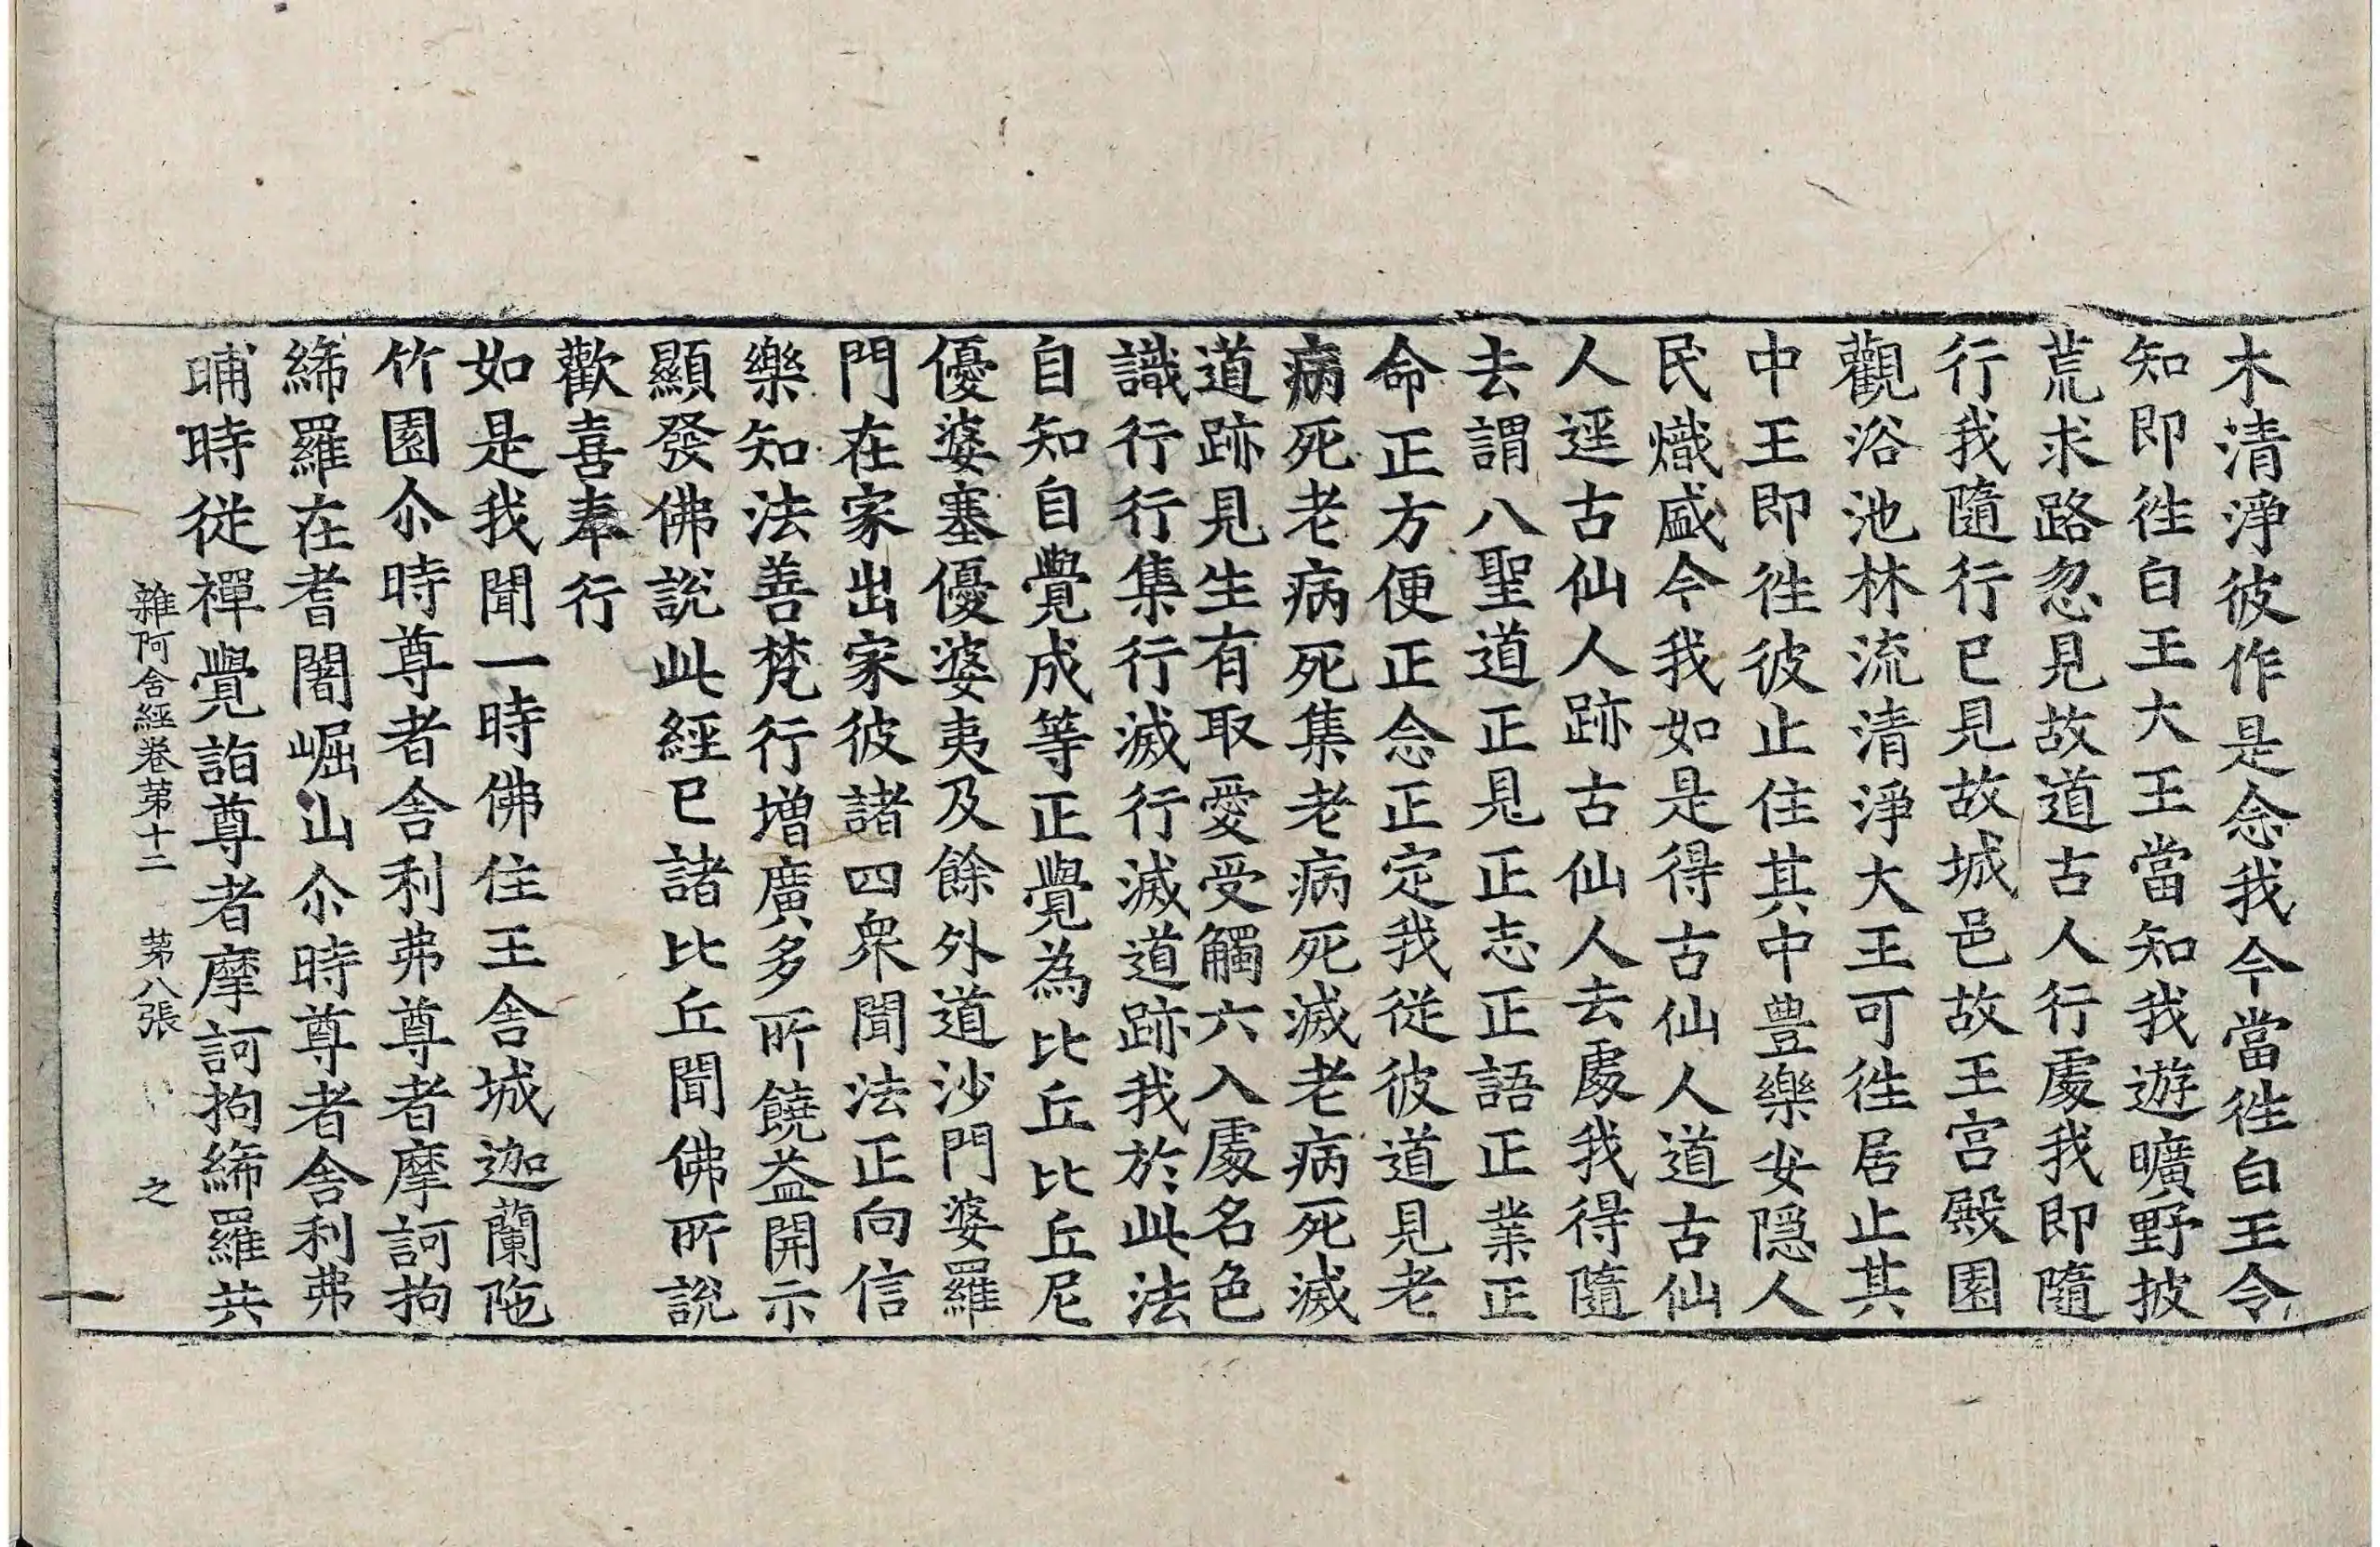 木清淨彼作是念我今當徃白王令
知即徃白王大王當知我遊曠野披
荒求路忽見故道古人行處我即隨
行我隨行已見故城邑故王宮殿園
觀浴池林流清淨大王可徃居止其
中王即徃彼止住其中豊樂安隱人
民熾盛今我如是得古仙人道古仙
人逕古仙人跡古仙人去處我得隨
去謂八聖道正見正志正語正業正
命正方便正念正定我從彼道見老
病死老病死集老病死滅老病死滅
道跡見生有取愛受觸六入處名色
識行行集行滅行滅道跡我於此法
自知自覺成等正覺為比丘比丘尼
優婆塞優婆夷及餘外道沙門婆羅
門在家出家彼諸四衆聞法正向信
樂知法善梵行增廣多所饒益開示
顯發佛說此經已諸比丘聞佛所說
歡喜奉行
如是我聞一時佛住王舍城迦蘭陁
竹園尒時尊者舍利弗尊者摩訶拘
絺羅在耆闍崛山尒時尊者舍利弗
晡時從禪覺詣尊者摩訶拘絺羅共
雜阿含經卷苐十二 苐八張 之